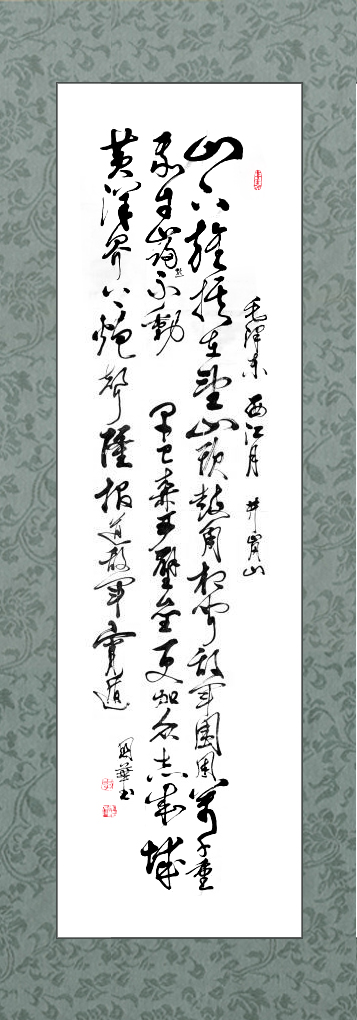 毛泽东 西江月 井岗山
山下旌旗在望山头鼓角相闻敌军围困万千重
我自岿然不動 早已森严壁垒更加众志成城
黄洋界上炮声隆报道敌军宵遁
國華书